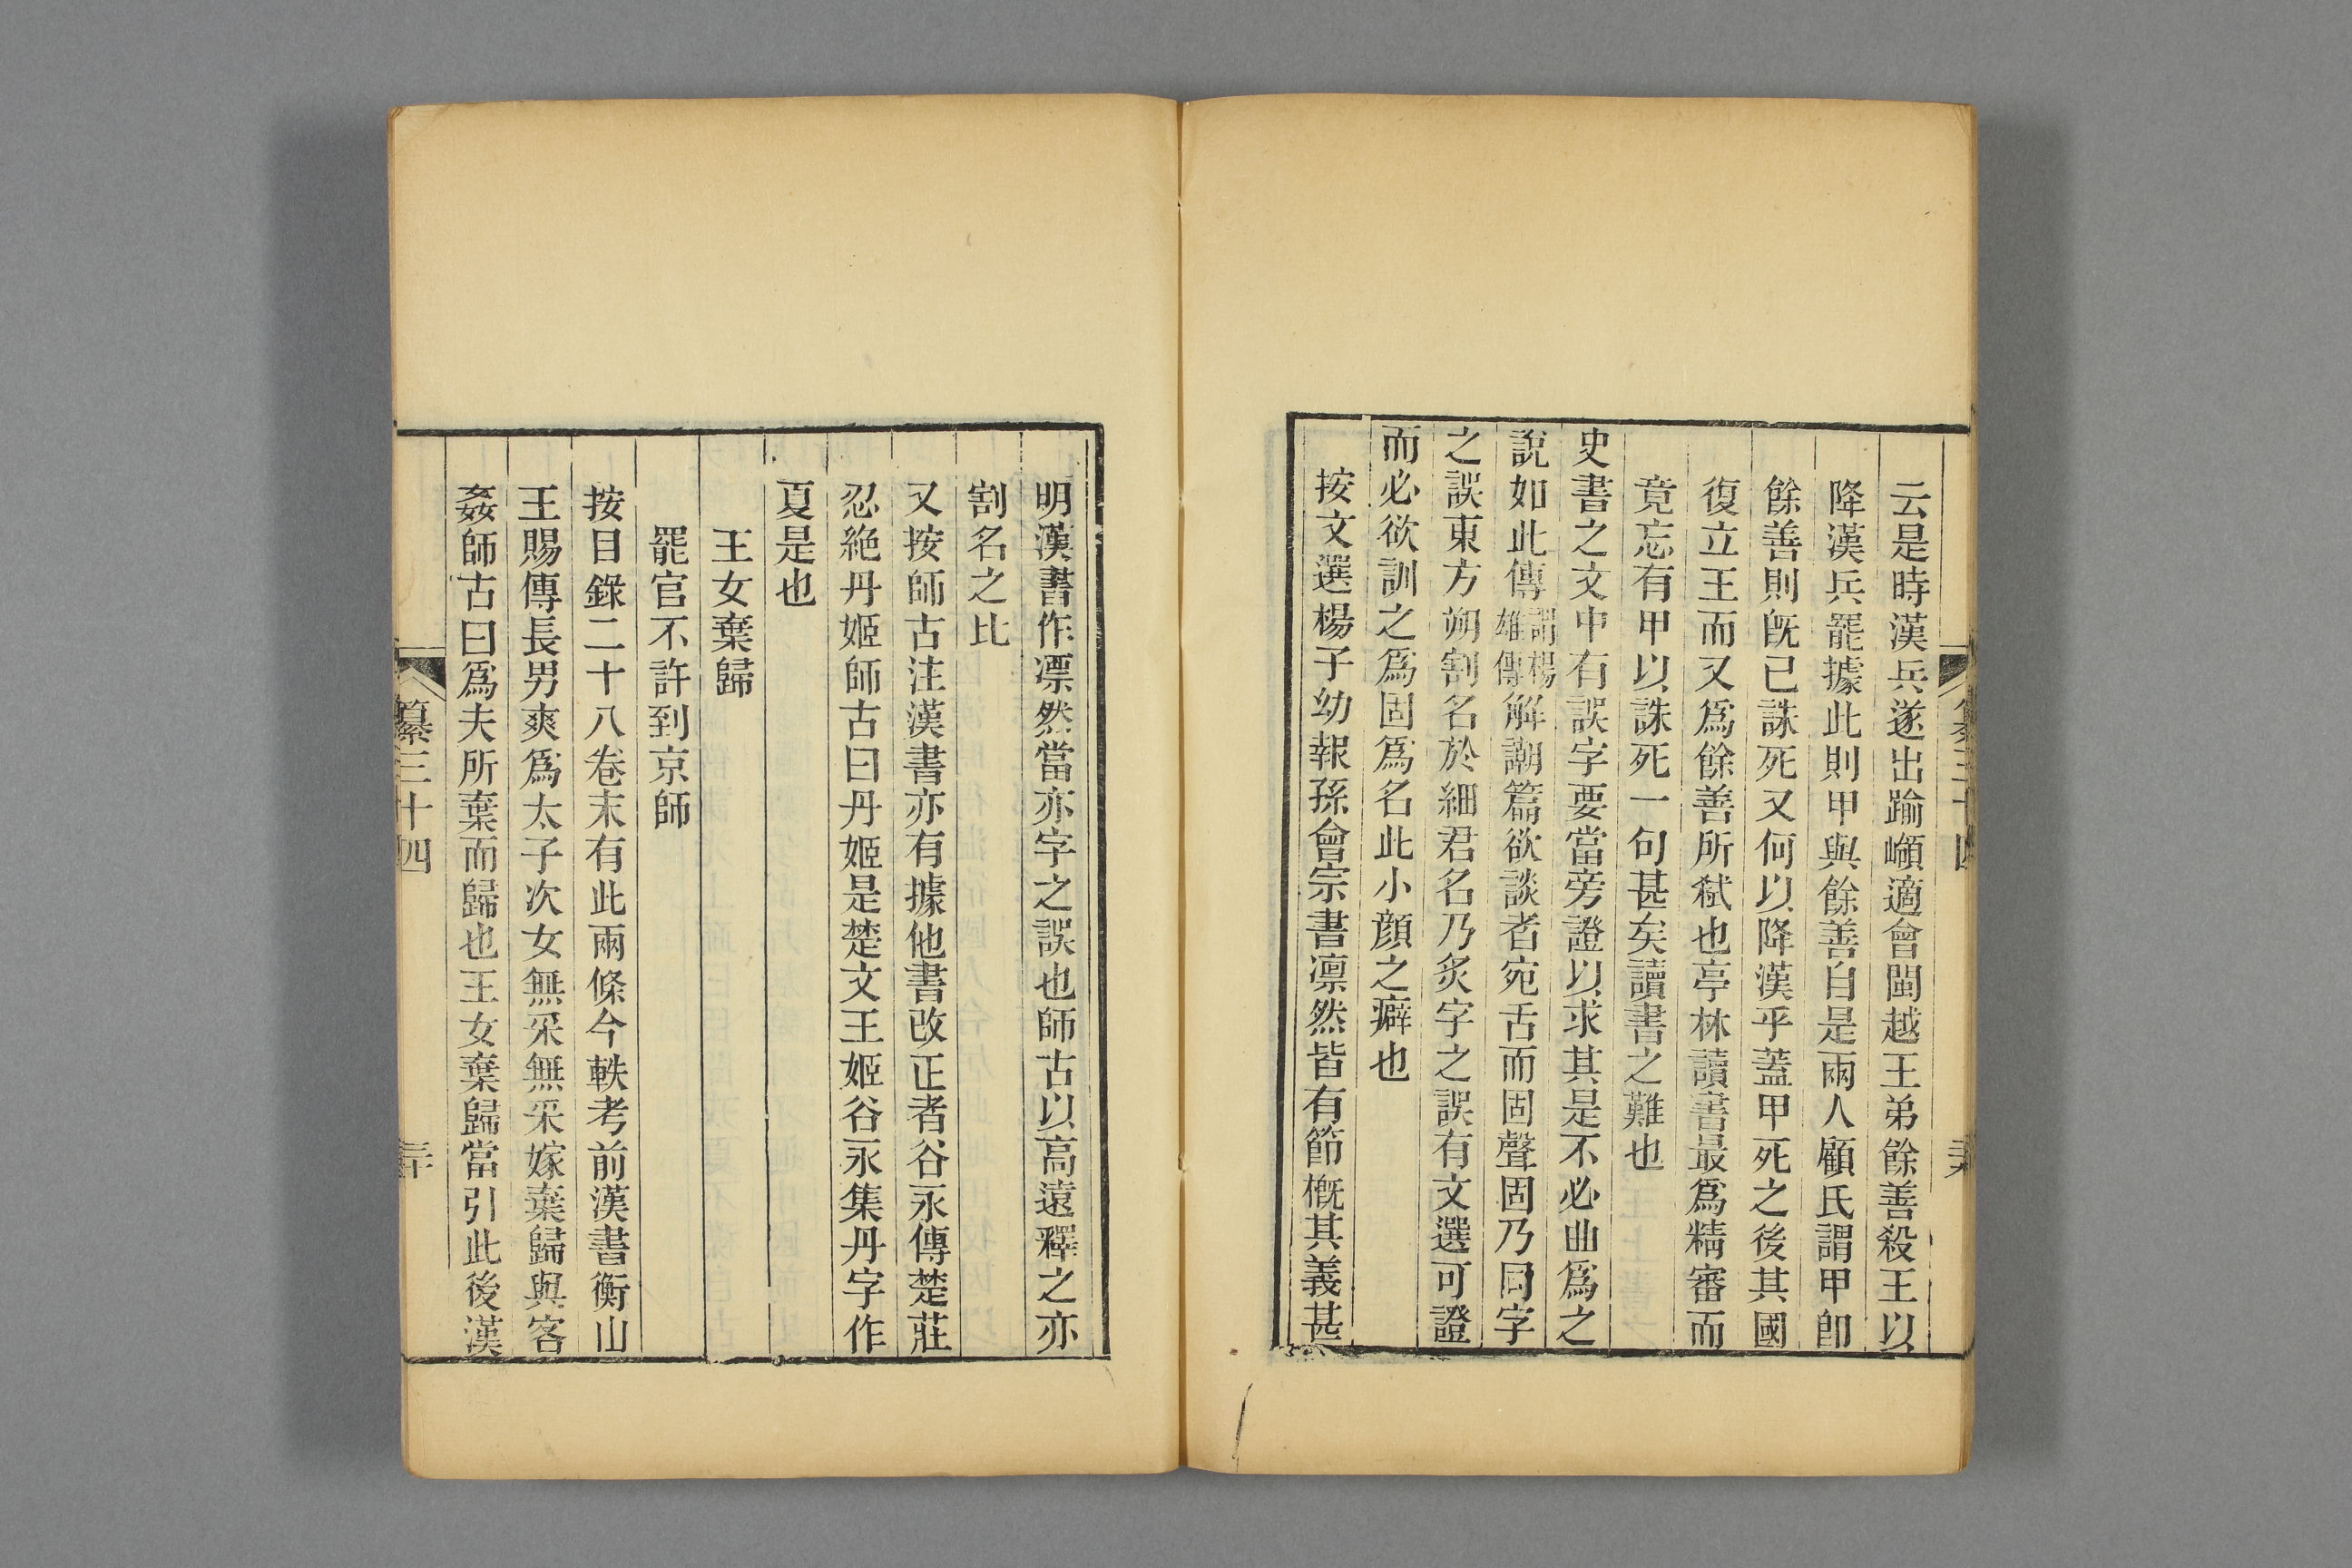 云是時漢兵遂出踰嶺適會閩越王弟餘善殺王以
降漢兵罷據此則甲與餘善自是兩人顧氏謂甲卽
餘善則旣已誅死又何以降漢乎蓋甲死之後其國
復立王而又爲餘善所弒也亭林讀書最爲精審而
竟忘有甲以誅死一句甚矣讀書之難也
史書之文中有誤字要當旁證以求其是不必曲爲之
說如此傳謂楊雄傳解嘲篇欲談者宛舌而固聲固乃同字
之誤東方朔割名於細君名乃炙字之誤有文選可證
而必欲訓之爲固爲名此小顏之癖也
按文選楊子幼報孫會宗書凛然皆有節槪其義甚
明漢書作漂然當亦字之誤也師古以高遠釋之亦
割名之比
又按師古注漢書亦有據他書改正者谷永傳楚莊
忍絶丹姬師古曰丹姬是楚文王姬谷永集丹字作
夏是也
王女棄歸
罷官不許到京師
按目錄二十八卷末有此兩條今軼考前漢書衡山
王賜傳長男爽爲太子次女無采無采嫁棄歸與客
姦師古曰爲夫所棄而歸也王女棄歸當引此後漢
纂三十四
三十